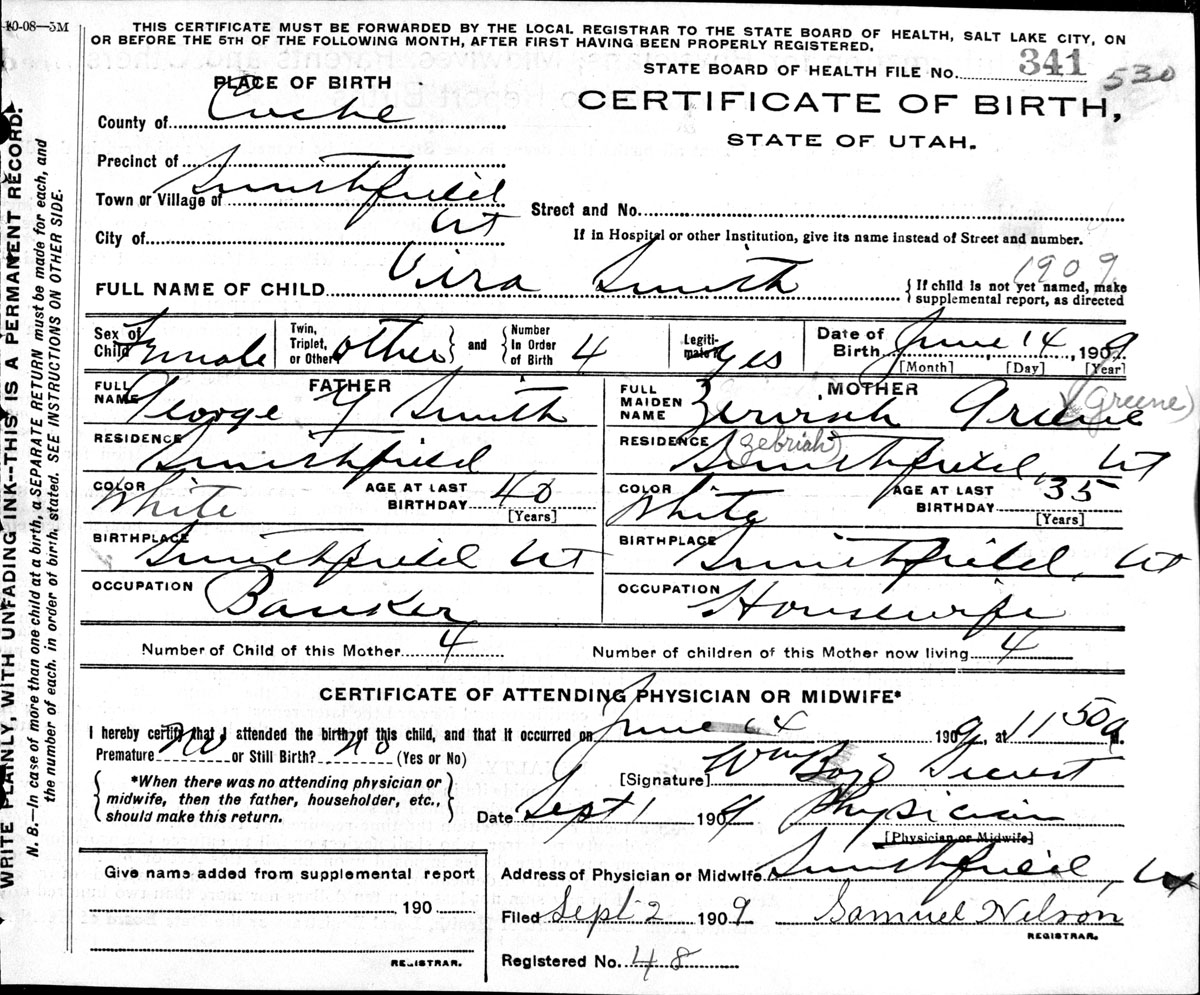 10-08—5M
THIS CERTIFICATE MUST BE FORWARDED BY THE LOCAL REGISTRAR TO THE STATE BOARD OF HEALTH, SALT LAKE CITY, ON
OR BEFORE THE 5TH OF THE FOLLOWING MONTH, AFTER FIRST HAVING BEEN PROPERLY REGISTERED.
STATE BOARD OF HEALTH FILE No. 341 530
PLACE OF BIRTH
CERTIFICATE OF BIRTH,
STATE OF UTAH.
County of Cache
Precinct of Smithfield
Town or Village of
Ut
Street and No.
City of
If in Hospital or other Institution, give its name instead of Street and number.
1909
FULL NAME OF CHILD Vira Smith
{ If child is not yet named, make
supplemental report, as directed
Sex of Child Female
Twin, Triplet, or Other? other } and { Number In Order of Birth 4
Legitimate? yes
Date of Birth June 14, 1909
[Month] [Day] [Year]
FATHER
FULL NAME George Y Smith
RESIDENCE Smithfield
COLOR White
AGE AT LAST BIRTHDAY 40 [Years]
BIRTHPLACE Smithfield Ut
OCCUPATION Banker
MOTHER
FULL MAIDEN NAME Zerviah Greene (Greene)
(Zebriah)
RESIDENCE Smithfield, Ut
COLOR White
AGE AT LAST BIRTHDAY 35 [Years]
BIRTHPLACE Smithfield, Ut
OCCUPATION Housewife
Number of Child of this Mother 4
Number of children of this Mother now living 4
CERTIFICATE OF ATTENDING PHYSICIAN OR MIDWIFE*
I hereby certify that I attended the birth of this child, and that it occurred on June 14 1909, at 11 50 a M.
Premature No or Still Birth? no (Yes or No)
{ *When there was no attending physician or
midwife, then the father, householder, etc.,
should make this return. }
[Signature] Wm
Date Sept 1 1909 Physician
[Physician or Midwife]
Address of Physician or Midwife Smithfield, Ut
Filed Sept 2 1909 Samuel Nelson
REGISTRAR.
Registered No. 48
Give name added from supplemental report
190
REGISTRAR.
WRITE PLAINLY, WITH UNFADING INK--THIS IS A PERMANENT RECORD.
N. B.—In case of more than one child at a birth, a SEPARATE RETURN must be made for each, and
the number of each, in order of birth, stated. SEE INSTRUCTIONS ON OTHER SIDE.